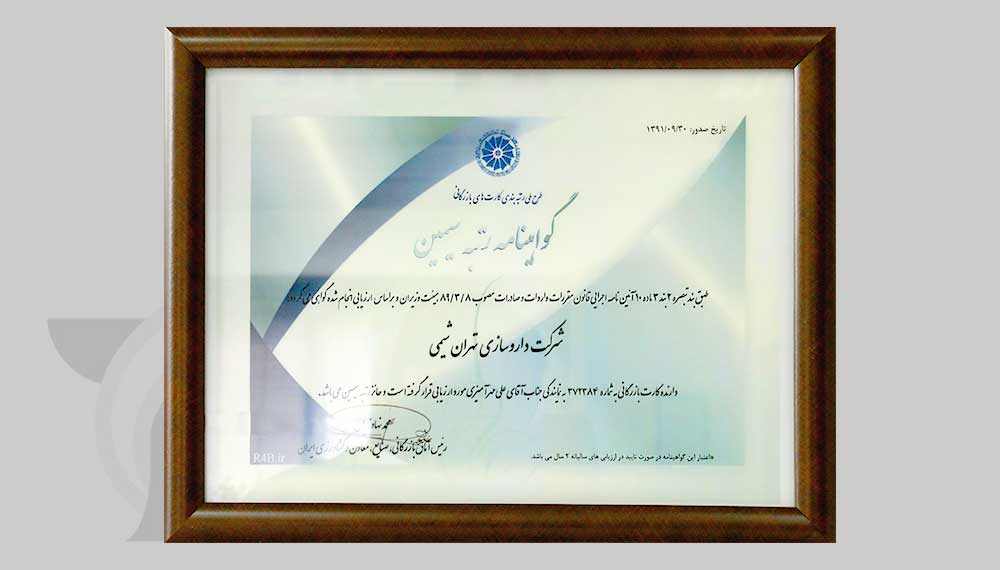 تاریخ صدور: ۱۳۹۱/۰۹/۳۰
طرح ملی رتبه بندی کارت های بازرگانی
گواهینامه رتبه سیمین
طبق بند تبصره ۲ بند ۳ ماده ۱۰ آئین نامه اجرایی قانون مقررات واردات و صادرات مصوب ۸۹/۳/۸ هیئت وزیران و براساس ارزیابی انجام شده گواهی می گردد:
شرکت داروسازی تهران شیمی
دارنده کارت بازرگانی به شماره ۳۷۲۳۸۴ به نمایندگی جناب آقای علی مهرآمیزی مورد ارزیابی قرار گرفته است و حائز رتبه سیمین می باشد.
محمد نهاوندیان
رئیس اتاق بازرگانی، صنایع، معادن و کشاورزی ایران
*اعتبار این گواهینامه در صورت تایید در ارزیابی های سالیانه ۲ سال می باشد.
R4B.ir